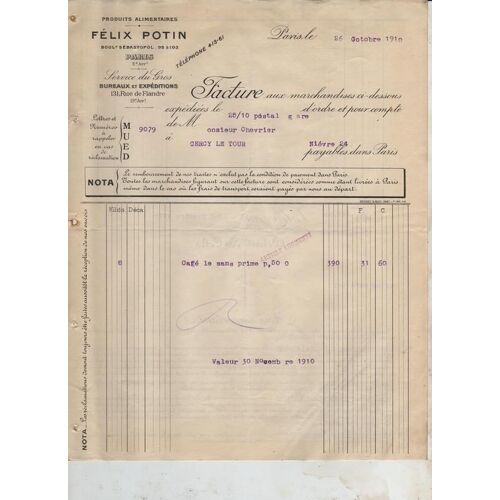 PRODUITS ALIMENTAIRES
FÉLIX POTIN
BOULD SÉBASTOPOL, 95 & 103
PARIS
Service du Gros
BUREAUX ET EXPÉDITIONS
131, Rue de Flandre
TÉLÉPHONE 413-61
Paris, le 26 Octobre 1910
Facture aux marchandises ci-dessous
expédiées le 25/10 postal gare d'ordre et pour compte
de M onsieur Chevrier
à CERCY LE TOUR Nièvre 24
payables dans Paris
Lettres et
Numéros
à
rappeler
en cas
de réclamation
MUED
9079
NOTA
Le remboursement de nos traites n'exclut pas la condition de paiement dans Paris.
Toutes les marchandises figurant sur cette facture sont considérées comme étant livrées à Paris
même dans le cas où les frais de transport seraient payés par nous au départ.
Kilos Déca F. C.
8 Café le sans prime p,50 c 390 31 60
Valeur 30 Nocembre 1910
NOTA